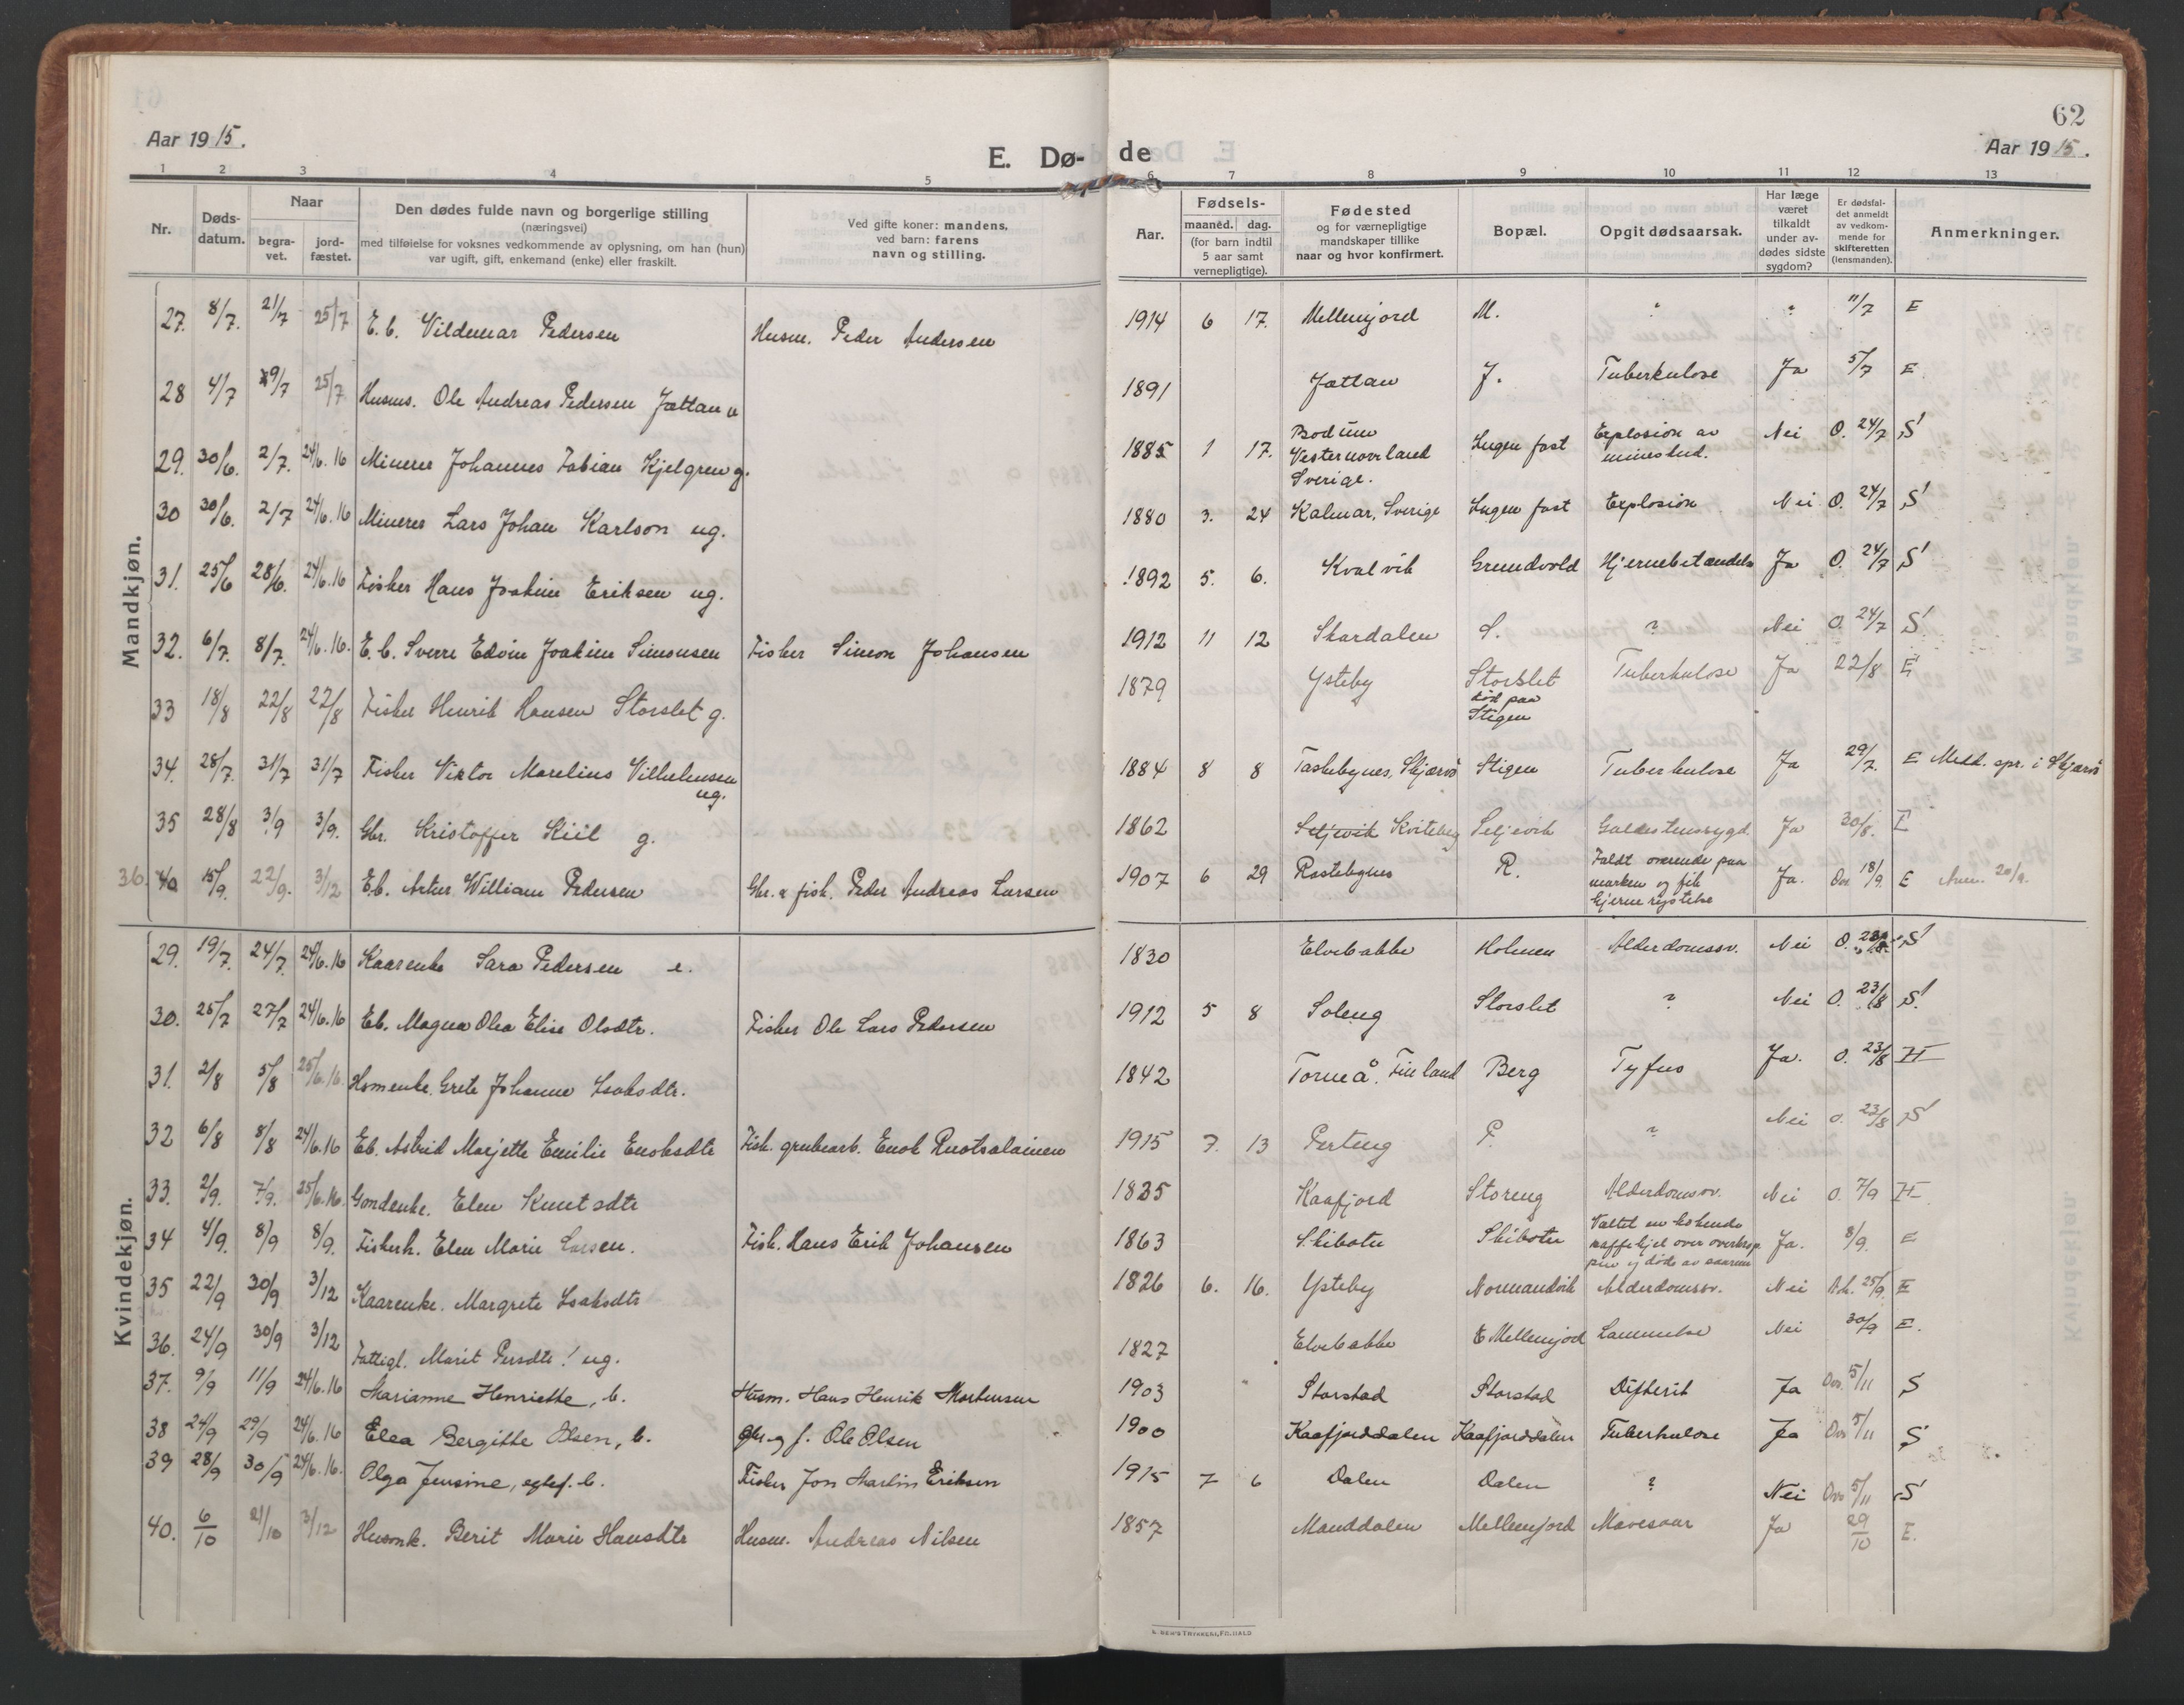 62
Aar 1915.
E. Dø-de
Aar 1915.
1 2 3 4 5 6 7 8 9 10 11 12 13
Nr.
Døds-
datum.
Naar
begra-
vet.
jord-
fæstet.
Den dødes fulde navn og borgerlige stilling
(næringsvei)
med tilføielse for voksnes vedkommende av oplysning, om han (hun)
var ugift, gift, enkemand (enke) eller fraskilt.
Ved gifte koner: mandens,
ved barn: farens
navn og stilling.
Aar.
Fødsels-
maaned. dag.
(for barn indtil
5 aar samt
vernepligtige).
Fødested
og for værnepligtige
mandskaper tillike
naar og hvor konfirmert.
Bopæl.
Opgit dødsaarsak.
Har læge
været
tilkaldt
under av-
dødes sidste
sygdom?
Er dødsfal-
det anmeldt
av vedkom-
mende for
skifteretten
(lensmanden).
Anmerkninger.
Mandkjøn.
27. 8/7. 21/7 25/7 E. b. Vildemar Pedersen Husm. Peder Andersen 1914 6 17. Mellemjord M. " " 11/7 E
28 4/7 29/7 25/7 Husms. Ole Andreas Pedersen Jattan u 1891 Jattan J. Tuberkulose Ja 5/7 E.
29. 30/6. 2/7. 24/6.16 Minerer Johannes Fabian Kjelgren g. 1885 1 17. Bodum
Vesternorrland
Sverige. Ingen fast Explosion av
mineskud. Nei O. 24/7 S
30 30/6. 2/7 24/6.16 Minerer Lars Johan Karlson ug. 1880 3. 24 Kalmar, Sverige Ingen fast Explosion Nei O. 24/7 S
31. 25/6 28/6. 24/6.16 Fisker Hans Joakim Eriksen ug. 1892 5. 6. Kvalvik Grundvold Hjernebetændelse Ja O. 24/7 S
32. 6/7. 8/7. 24/6.16. E. b. Sverre Edvin Joakim Simonsen Fisker Simon Johansen 1912 11 12 Skardalen S. ? Nei O. 24/7 S
33 18/8 22/8 22/8 Fisker Henrik Hansen Storslet g. 1879 Ysteby Storslet
død paa
Stigen Tuberkulose Ja 22/8 E
34. 28/7. 31/7 31/7 Fisker Viktor Marelius Vilhelmsen
ug. 1884 8 8 Taskebynes, Skjærvö Stigen Tuberkulose Ja 29/7. E Medd. spr. i Skjærvö
35 28/8 3/9 3/9. Gbr. Kristoffer Kiil g. 1862 Seljevik Kviteberg Seljevik Galdestenssygd. Ja 30/8. E
36. 40 15/9. 22/9. 3/12 E.b. Artur William Pedersen Gbr. & fisk. Peder Andreas Larsen 1907 6 29 Rastebynes R. Faldt overende paa
marken og fik
hjernerystelse Ja. 18/9. E 20/9.
Kvindekjøn.
29. 19/7. 24/7. 24/6.16 Kaarenke Sara Pedersen e. 1830 Elvebakke Holmen Alderdomssv. Nei O. 23/8. S
30. 25/7 27/7 24/6.16 Eb. Magna Olea Elise Olsdtr. Fisker Ole Lars Pedersen 1912 5 8 Soleng Storslet ? Nei O. 23/8 S.
31. 2/8 5/8 25/6.16. Hsmenke. Grete Johanne Isaksdtr. 1842 Torneå, Finland Berg Tyfus Ja. O. 23/8 H
32 6/8 8/8 24/6.16 Eb. Astrid Marjette Emilie Enoksdtr Fisk. grubearb. Enok Ruotsalainen 1915 7. 13 Perteng P. ? Nei O. 23/8 S
33. 2/9. 7/9. 25/6.16. Gondenke. Elen Knutsdtr 1835 Kaafjord Storeng Alderdomssv. Nei O. 7/9 H
34 4/9. 8/9 8/9. Fiskerk. Elen Marie Larsen. Fisk. Hans Erik Johansen 1863 Skibotn Skibotn Væltet en kokende
kaffekjel over overkrop
pen og døde av saarene Ja. 8/9. E
35 22/9 30/9 3/12 Kaarenke. Margrete Isaksdtr 1826 6. 16. Ysteby Normandvik Alderdomssv. Nei 25/9. E
36. 24/9 30/9 3/12 Fattigl. Marit Persdtr! ug. 1827 Elvebakke Mellemjord Lammelse Nei 30/9 E.
37. 9/9 11/9 24/6.16 Marianne Henriette, b. Husm. Hans Henrik Mortensen 1903 Storstad Storstad Difterit Ja 5/11 S
38 24/9 29/9 24/6.16 Elea Bergitte Olsen, b. Gbr. og f. Ole Olsen 1900 Kaafjorddalen Kaafjorddalen Tuberkulose Ja 5/11 S
39 28/9 30/9 24/6.16. Olga Jensine, egtef. b. Fisker Jon Martin Eriksen 1915 7 6 Dalen Dalen ? Nei 5/11 S
40. 6/10 21/10 3/12 Husmk. Berit Marie Hansdtr Husm. Andreas Nilsen 1857 Manddalen Mellemjord Mavesaar Ja 29/10 E.